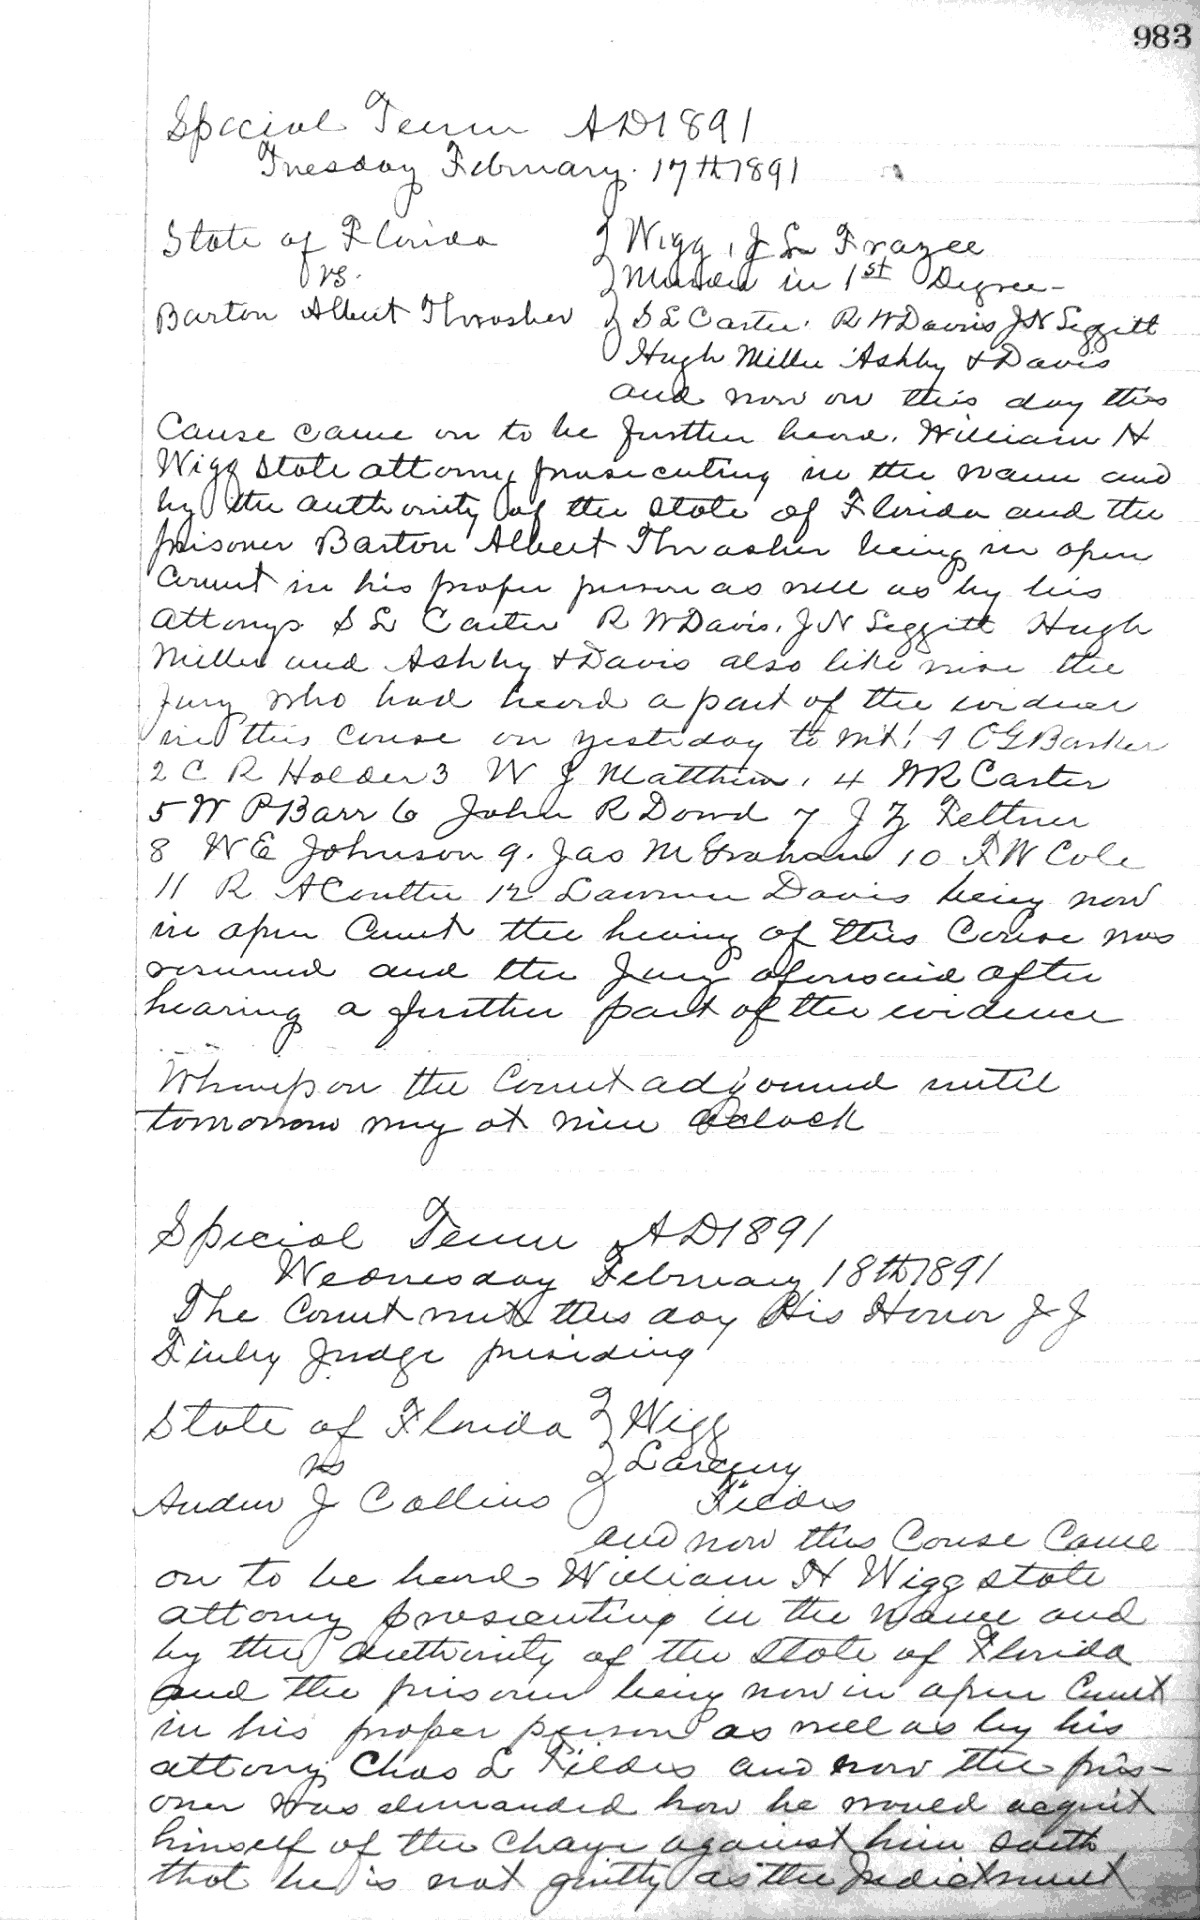 983
Special Term AD1891
Tuesday February 17th 1891
State of Florida } Wigg, J L Frazee
vs. } Murder in 1st Degree-
Barton Albert Thrasher } S L Carter. R W Davis J N
Hugh Miller Ashby & Davis
and now on this day this
Cause came on to be further heard. William H
Wigg State attorny prosecuting in the name and
by the authority of the State of Florida and the
prisoner Barton Albert Thrasher being in open
Court in his proper person as well as by his
attonys S L Carter R W Davis, J N Hugh
Miller and Ashby & Davis also like wise the
Jury who had heard a part of the evidence
in this Couse on yesterday to wit! 1 C G Barker
2 C R Holder 3 W J Matthews, 4 W R Carter
5 W P Barr 6 John R Dowd 7 J Z Feltner
8 W E Johnson 9. Jas M Graham 10 F W Cole
11 R A Coulter 12 Lawrence Davis being now
in open Court the hearing of this Couse was
resumed and the Jury aforesaid after
hearing a further part of the evidence
Whereupon the Court adjourned until
tomorrow mng at nine Oclock
Special Term AD1891
Wednesday February 18th 1891
The Court met this day His Honor J J
Finley Judge presiding
State of Florida } Wigg
vs } Larceny
Andrew J Collins } Fildes
and now this Couse Came
on to be heard William H Wigg State
attorny prosecuting in the name and
by the authority of the State of Florida
and the prisoner being now in open Court
in his proper person as well as by his
attorny Chas L Fildes and now the pris-
oner was demanded how he would acquit
himself of the Charge against him saith
that he is not guilty as the Indictment